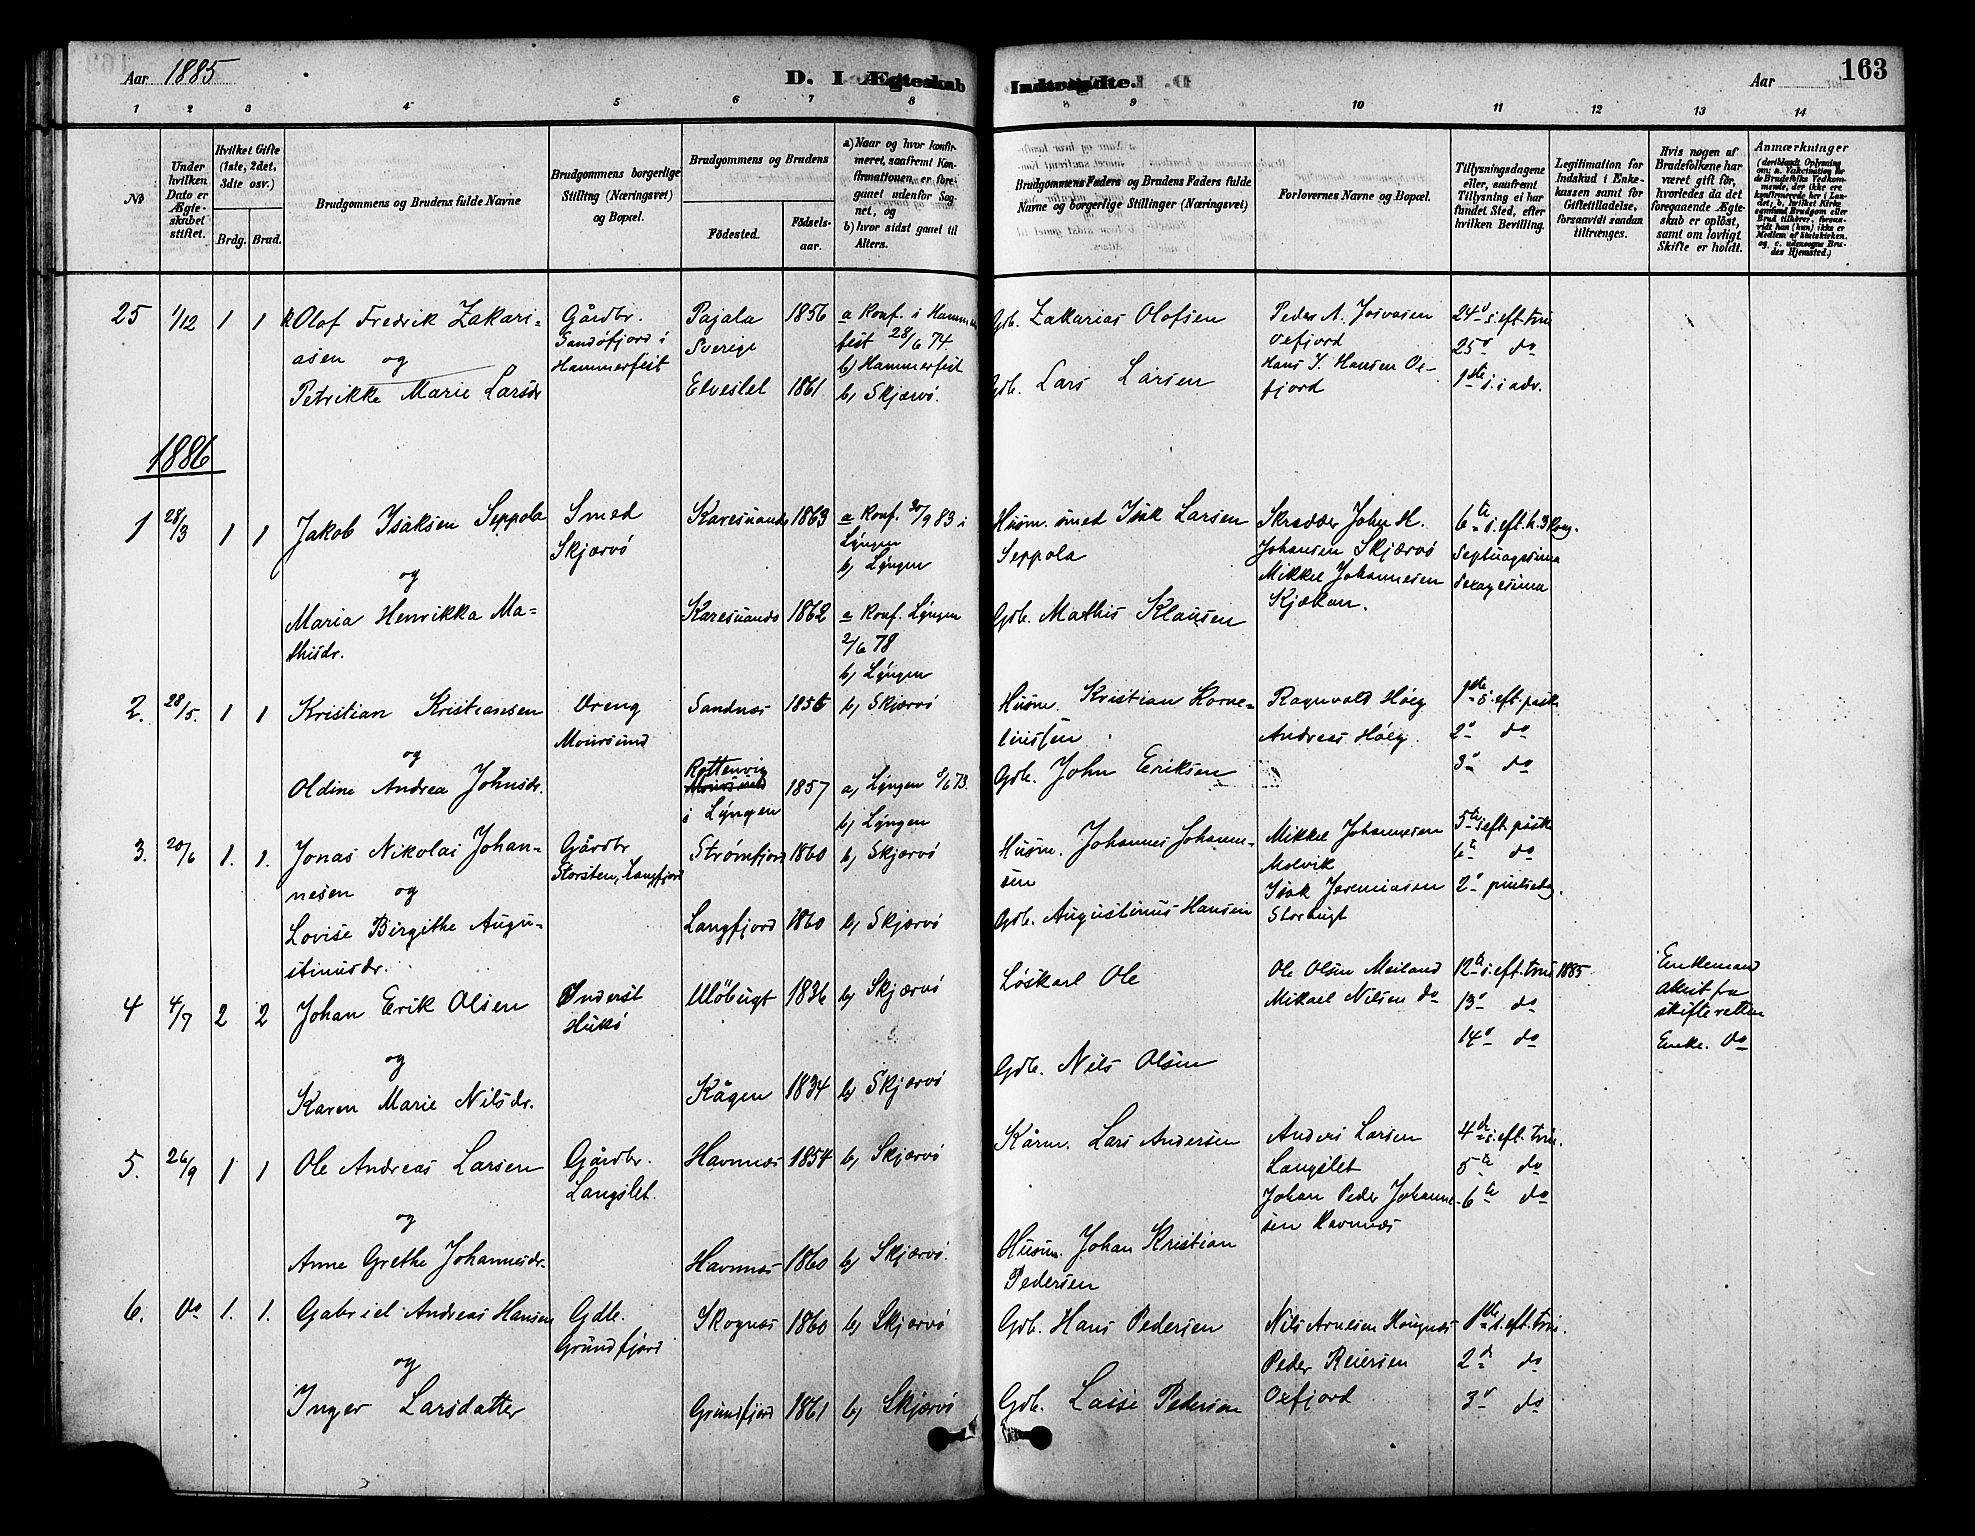 Aar 1885
D. I Ægteskab
Indtrædte.
Aar
163
1 2 3 4 5 6 7 8
8 9 10 11 12 13 14
No
Under hvilken Dato er Ægteskabet stiftet.
Hvilket Gifte (1ste, 2det, 3die osv.)
Brdg. Brud.
Brudgommens og Brudens fulde Navne
Brudgommens borgerlige Stilling (Næringsvei) og Bopæl.
Brudgommens og Brudens
Födested.
Födselsaar.
a) Naar og hvor konfirmeret, saafremt Konfirmationen er foregaaet udenfor Sognet, og
b) hvor sidst gaaet til Alters.
Brudgommens Faders og Brudens Faders fulde Navne og borgerlige Stillinger (Næringsvei)
Forlovernes Navne og Bopæl.
Tillysningsdagene eller, saafremt Tillysning ei har fundet Sted, efter hvilken Bevilling.
Legitimation for Indskud i Enkekassen samt for Giftetilladelse, forsaavidt saadan tiltrænges.
Hvis nogen af Brudefolkene har været gift för, hvorledes da det foregaaende Ægteskab er oplöst, samt om lovligt Skifte er holdt.
Anmærkninger
25 1/12 1 1 Olof Fredrik Zakari-
asen og
Petrikke Marie Larsdr
Gårdbr.
Sandöfjord i
Hammerfest
Pajala 1856
Sverige
Elveslet 1861
a Konf. i Hammer
fest 28/6 74.
b) Hammerfest
b, Skjærvö.
Gdb. Zakarias Olofsen
Gdb. Lars Larsen
Peder A. Josvasen
Oxfjord
Hans I. Hansen Ox-
fjord
24de s. eft. trin
25de do
1ste s. i adv.
1886
1 28/3 1 1 Jakob Isaksen Seppola
og
Maria Henrikka Ma-
thisdr.
Smed
Skjærvö
Karesuando 1863
Karesuando 1862
a Konf. 30/9 83 i
Lyngen
b, Lyngen
a Konf. Lyngen
2/6 78
b, Lyngen
Husm. smed Isak Larsen
Seppola
Gdb. Mathis Klausen
Skrædder John H.
Johansen Skjærvö
Mikkel Johannesen
Kjækan.
6te s. eft. h. 3 Kong.
Septuagesima
Sexagesima
2. 28/5. 1 1 Kristian Kristiansen
og
Oldine Andrea Johnsdr.
Dreng
Maursund
Sandnæs 1856
Rottenvig
i Lyngen 1857
b, Skjærvö
a, Lyngen 8/6 73.
b, Lyngen
Husm. Kristian Korne-
liussen
Gdb. John Eriksen
Ragnvald Höeg
Andreas Höeg.
1ste s. eft. påske
2. do
3. do
3. 20/6 1. 1. Jonas Nikolai Johan-
nesen og
Lovise Birgithe Augu-
stinusdr.
Gårdbr
Storsten, Langfjord
Strömfjord 1860
Langfjord 1860
b, Skjærvö
b, Skjærvö
Husm. Johannes Johanne-
sen
Gdb. Augustinus Hansen
Mikkel Johannesen
Molvik
Isak Jeremiasen
Storbugt
5te s. eft. påske
6te do
2. pintsedag.
4 4/7 2 2 Johan Erik Olsen
og
Karen Marie Nilsdr.
Inderst
Hukö
Ulöbugt 1836
Kågen 1834
b, Skjærvö
b, Skjærvö
Löskarl Ole
Gdb. Nils Olsen
Ole Olsen Meiland
Mikael Nilsen do
12te s. eft. trin 1885.
13. do
14. do
Enkemand
skifteretten
Enke. Do
5. 26/9 1 1 Ole Andreas Larsen
og
Anne Grethe Johannesdr.
Gårdbr.
Langslet.
Havnnæs 1854
Havnnæs 1860
b, Skjærvö
b, Skjærvö.
Kårm. Lars Andersen
Husm. Johan Kristian
Pedersen
Anders Larsen
Langslet
Johan Peder Johanne-
sen Havnnæs
4de s. eft. trin.
5te do
6te do
6. Do 1. 1. Gabriel Andreas Hansen
og
Inger Larsdatter
Gdb.
Grundfjord
Skognæs 1860
Grundfjord 1861
b, Skjærvö
b, Skjærvö
Gdb. Hans Pedersen
Gdb. Lasse Pedersen
Nils Arnesen Haugnæs
Peder Reiersen
Oxfjord
1ste s. eft. trin.
2d do
3. do